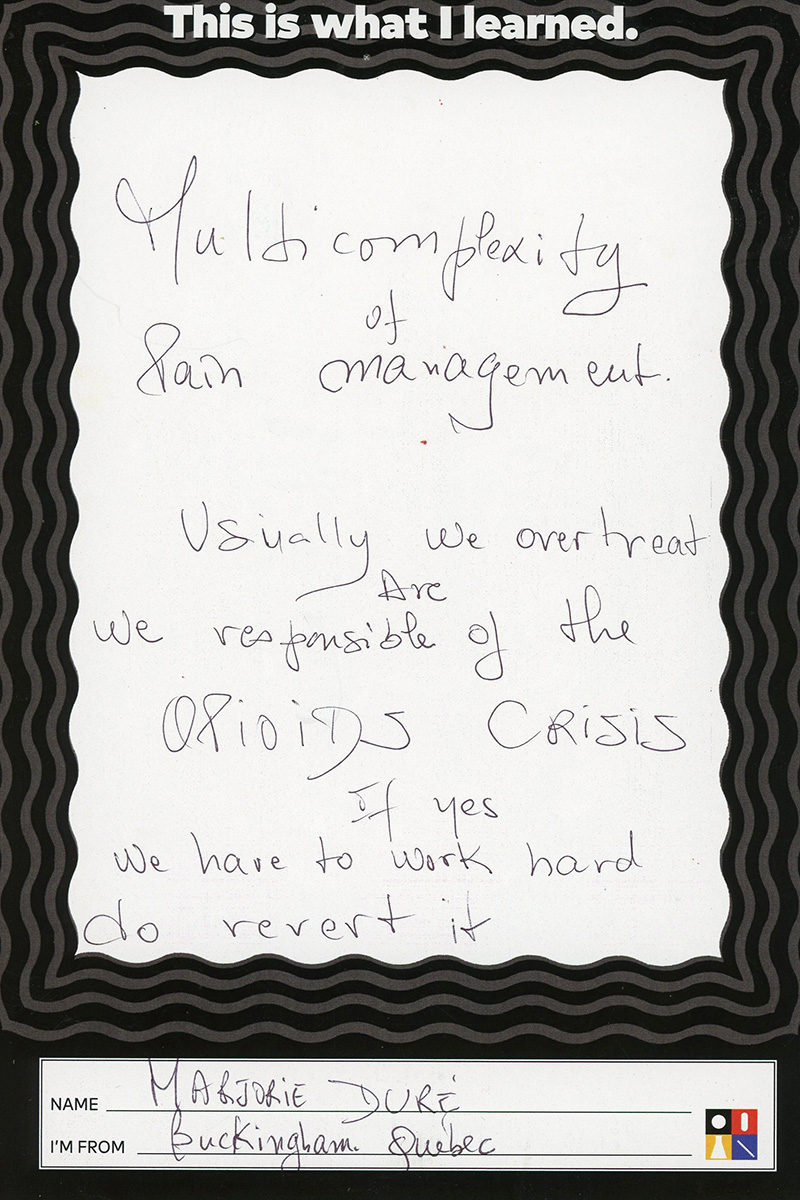 This is what I learned.
Multicomplexity
of
Pain management.
Usually we overtreat
Are
we responsible of the
OPiOiDS CRiSiS
If yes
we have to work hard
do revert it
NAME MARJORIE DURÉ
I'M FROM Buckingham. Quebec